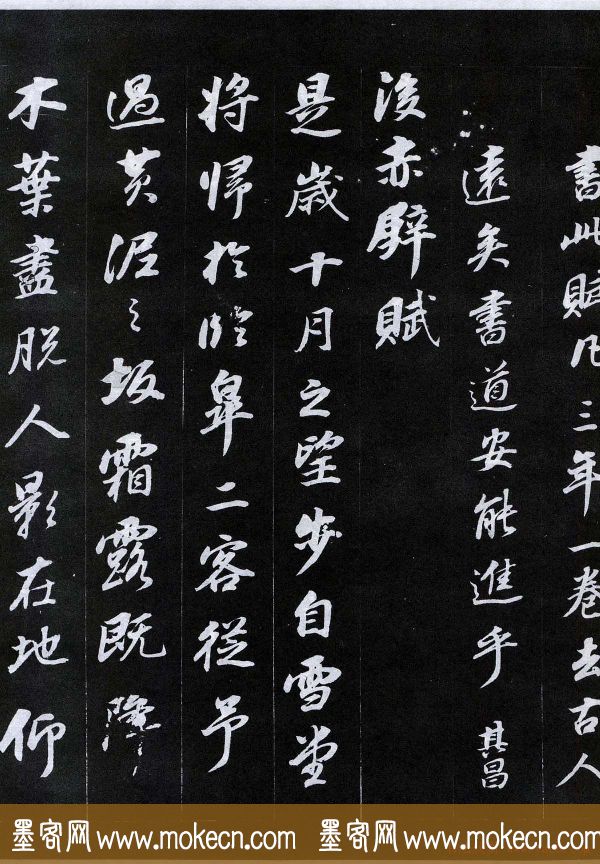 書此賦凡三年一卷去古人
遠矣書道安能進乎 其昌
後赤壁賦
是歲十月之望步自雪堂
將歸於臨皋二客從予
過黃泥之坂霜露既降
木葉盡脫人影在地仰
墨客网 www.mokecn.com 墨客网 www.mokecn.com